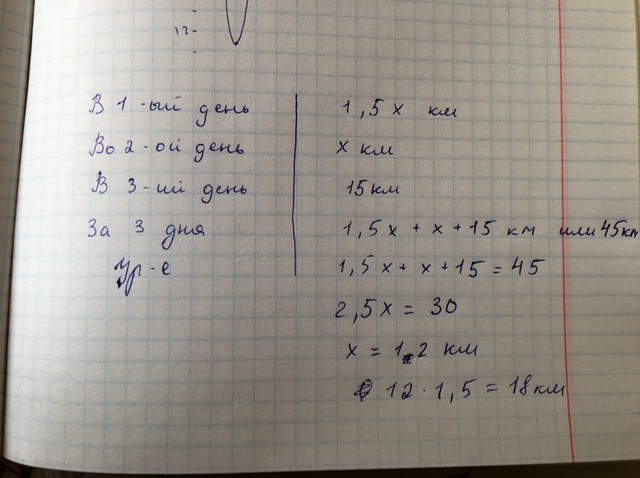 12
В 1-ый день 1,5x км
Во 2-ой день x км
В 3-ий день 15км
За 3 дня 1,5x + x + 15 км или 45км
Ур-е 1,5x + x + 15 = 45
2,5x = 30
x = 12 км
12 · 1,5 = 18км